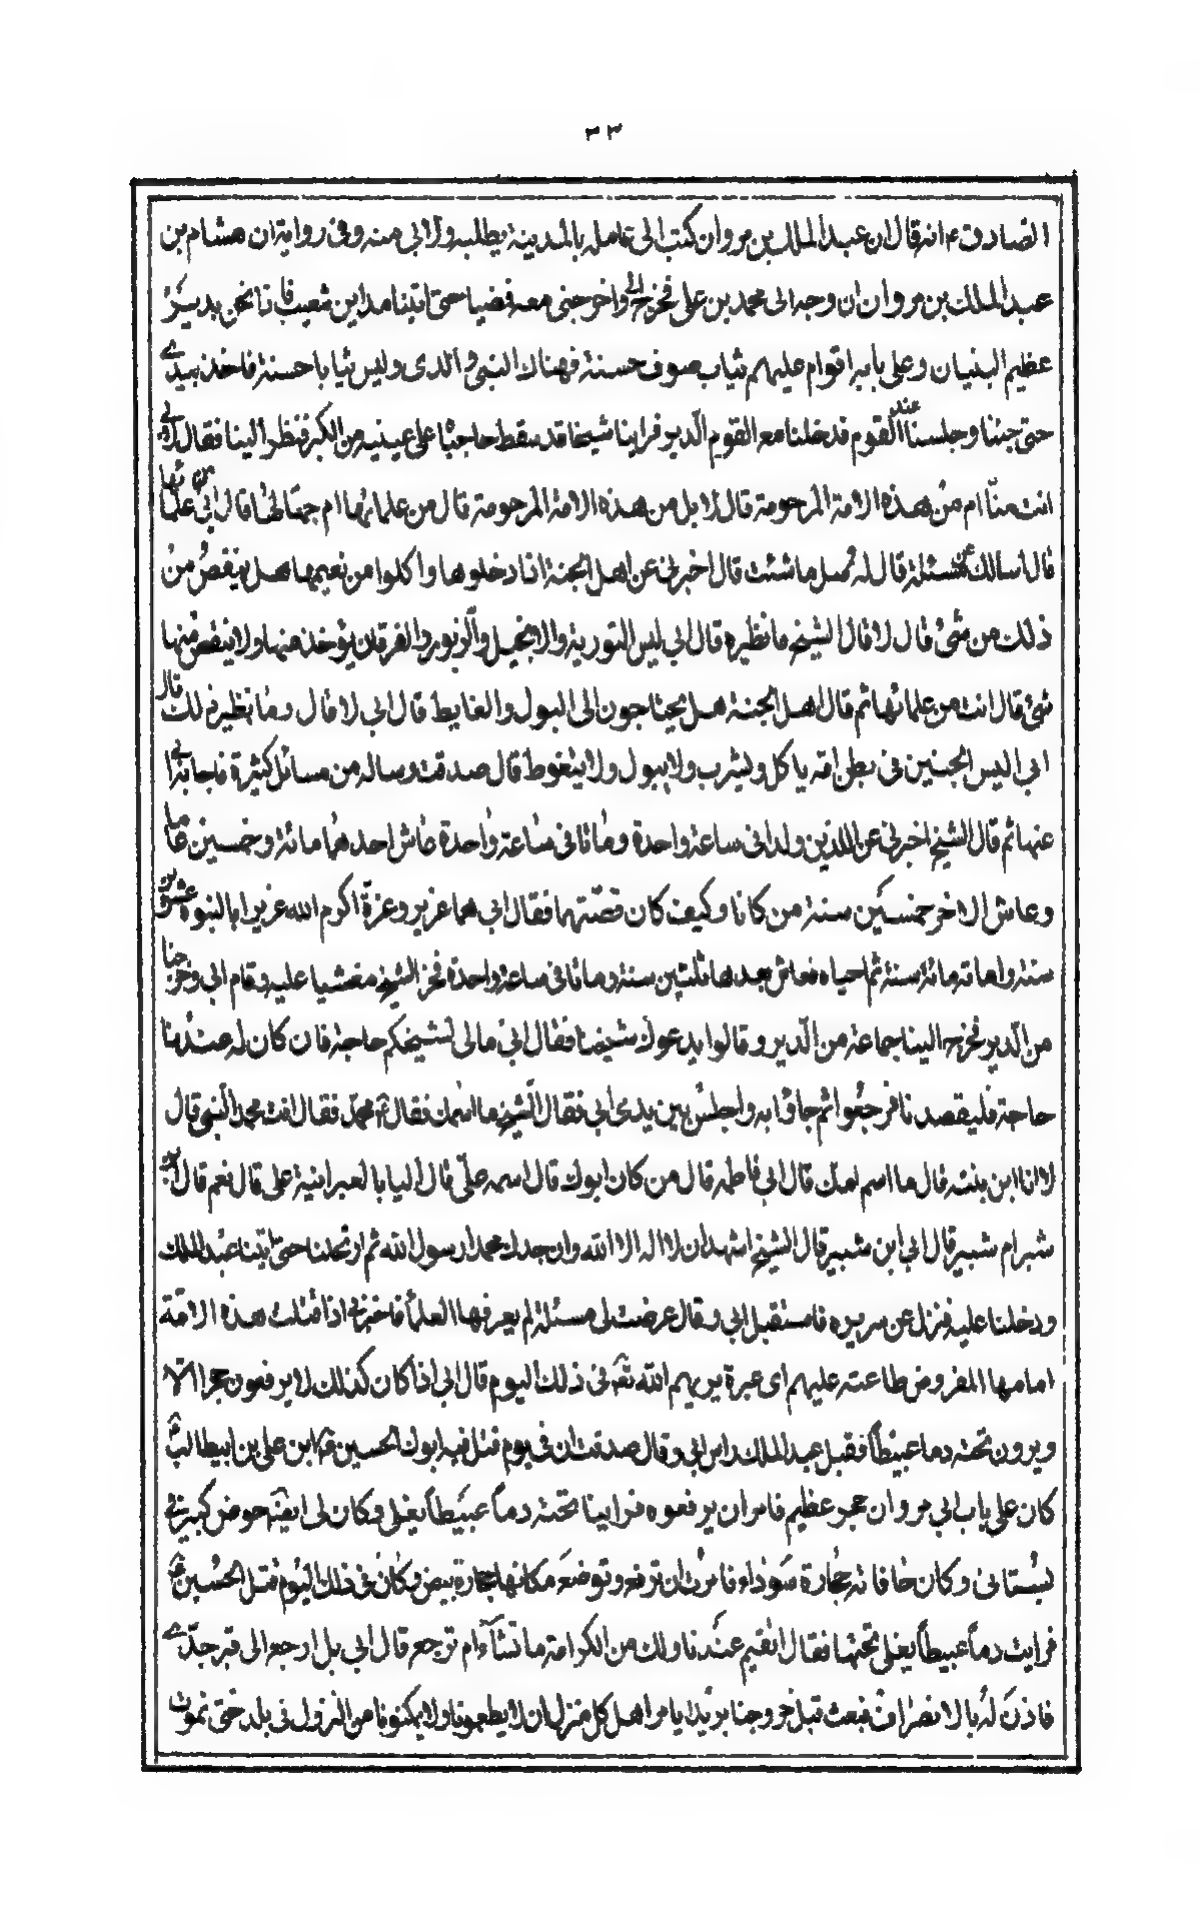 ٣٣
الصادق ع انه قال ان عبد الملك بن مروان كتب الى عامله بالمدينة يطلبه والابى منه وفى رواية ان هشام بن
عبد الملك بن مروان ان وجه الى محمد بن على فخرج ابى واخرجنى معه فمضيا حتى اتينا مداين شعيب فاذا نحن بدير
عظيم البنيان وعلى بابه اقوام عليهم ثياب صوف حسنة فهناك النبى والدى ولبس ثيابا حسنة فاخذ بيدى
حتى جئنا وجلسنا عند القوم فدخلنا مع القوم الدير فراينا شيخا قد سقط حاجباه على عينيه من الكبر فنظر الينا فقال لابى
انت منا ام من هذه الامة المرحومة قال لا بل من هذه الامة المرحومة قال من علمائها ام جهالها قال ابى من علمائها
قال اسالك عن مسئلة قال له سل ما شئت قال اخبرنى عن اهل الجنة اذا دخلوها واكلوا من نعيمها هل ينقص من
ذلك من شئ قال لا قال الشيخ ما نظيره قال ابى ليس التورية والانجيل والزبور والفرقان يؤخذ منها ولا ينقص منها
شئ قال انت من علمائها ثم قال اهل الجنة هل يحتاجون الى البول والغايط قال ابى لا قال وما نظير ذلك قال
ابى اليس الجنين فى بطن امه ياكل ويشرب ولا يبول ولا يتغوط قال صدقت وساله من مسائل كثيرة فاجابه ابى
عنها ثم قال الشيخ اخبرنى عن اللذين ولدا فى ساعة واحدة وماتا فى ساعة واحدة عاش احدهما مائة وخمسين عاما
وعاش الاخر خمسين سنة من كانا وكيف كان قصتهما فقال ابى هما عزير وعزرة اكرم الله عزيرا بالنبوة عشرين
سنة واماته مائة سنة ثم احياه فعاش بعدها ثلثين سنة وماتا فى ساعة واحدة فخر الشيخ مغشيا عليه وقام ابى وخرجنا
من الدير فخرج الينا جماعة من الدير وقالوا يدعوك شيخنا فقال ابى مالى لشيخكم حاجة فان كان له عندنا
حاجة فليقصدنا فرجعوا ثم جاؤا به واجلس بين يدى ابى فقال الشيخ ما اسمك فقال ع محمد فقال انت محمد النبى قال
لا انا ابن بنته قال ما اسم امك قال ابى فاطمه قال من كان ابوك قال اسمه على قال اليا بالعبرانية على قال نعم قال ابن
شبر ام شبير قال ابى ابن شبير قال الشيخ اشهد ان لا اله الا الله وان جدك محمدا رسول الله ثم ارتحلنا حتى اتينا عبد الملك
ودخلنا عليه فنزل عن سريره فاستقبل ابى وقال عرضت لى مسئلة لم يعرفها العلماء فاخبرنى اذا قتلت هذه الامة
امامها المفروض طاعته عليهم اى عبرة يريهم الله تعه فى ذلك اليوم قال ابى اذا كان كذلك لا يرفعون حجرا الا
ويرون تحته دما عبيطا فقبل عبد الملك راس ابى وقال صدقت ان فى يوم قتل فيه ابوك الحسين ابن على بن ابيطالب
كان على باب ابى مروان حجر عظيم فامر ان يرفعوه فراينا تحته دماً عبيطاً يغلى وكان لى ايضه حوض كبير فى
بستانى وكان حافاته حجارة سوداء فامرت ان ترفع وتوضع مكانها حجارة بيض وكان فى ذلك اليوم قتل الحسين ع
فرايت دماً عبيطاً يغلى تحتها فقال اتقيم عندنا ولك من الكرامة ما تشاء ام ترجع قال ابى بل ارجع الى قبر جدى
فاذن له بالانصراف فبعث قبل خروجنا بريدا يامر اهل كل منزل ان لا يطعمونا ولا يمكنونا من النزول فى بلد حتى نموت